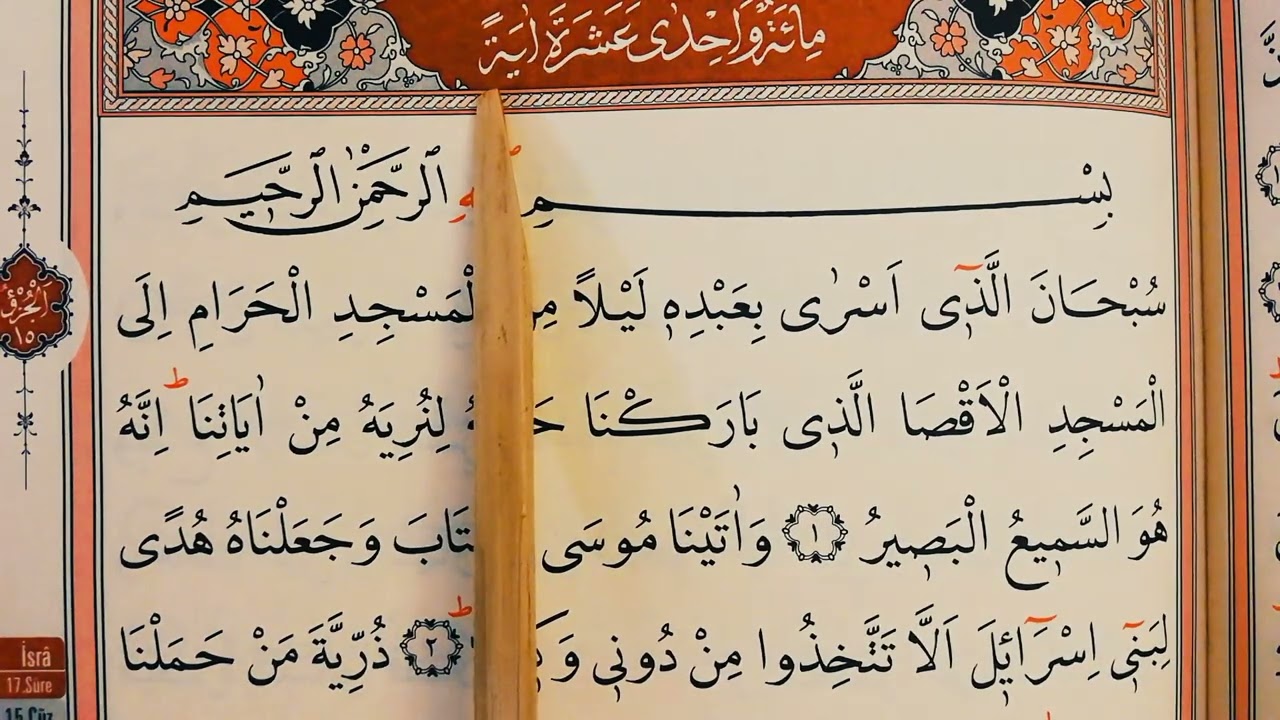 مِائَةٌ وَاِحْدٰى عَشَرَةَ اٰيَةً
بِسْمِ الرَّحْمٰنِ الرَّحٖيمِ
سُبْحَانَ الَّذٖٓى اَسْرٰى بِعَبْدِهٖ لَيْلًا الْمَسْجِدِ الْحَرَامِ اِلَى
الْمَسْجِدِ الْاَقْصَا الَّذٖى بَارَكْنَا لِنُرِيَهُ مِنْ اٰيَاتِنَاؕ اِنَّهُ
هُوَ السَّمٖيعُ الْبَصٖيرُ ١ وَاٰتَيْنَا مُوسَى وَجَعَلْنَاهُ هُدًى
لِبَنٖٓى اِسْرَٓائٖلَ اَلَّا تَتَّخِذُوا مِنْ دُونٖى ٢ ذُرِّيَّةَ مَنْ حَمَلْنَا
اَلْجُزْؤُ
١٥
İsrâ
17.Sûre
15.Cüz